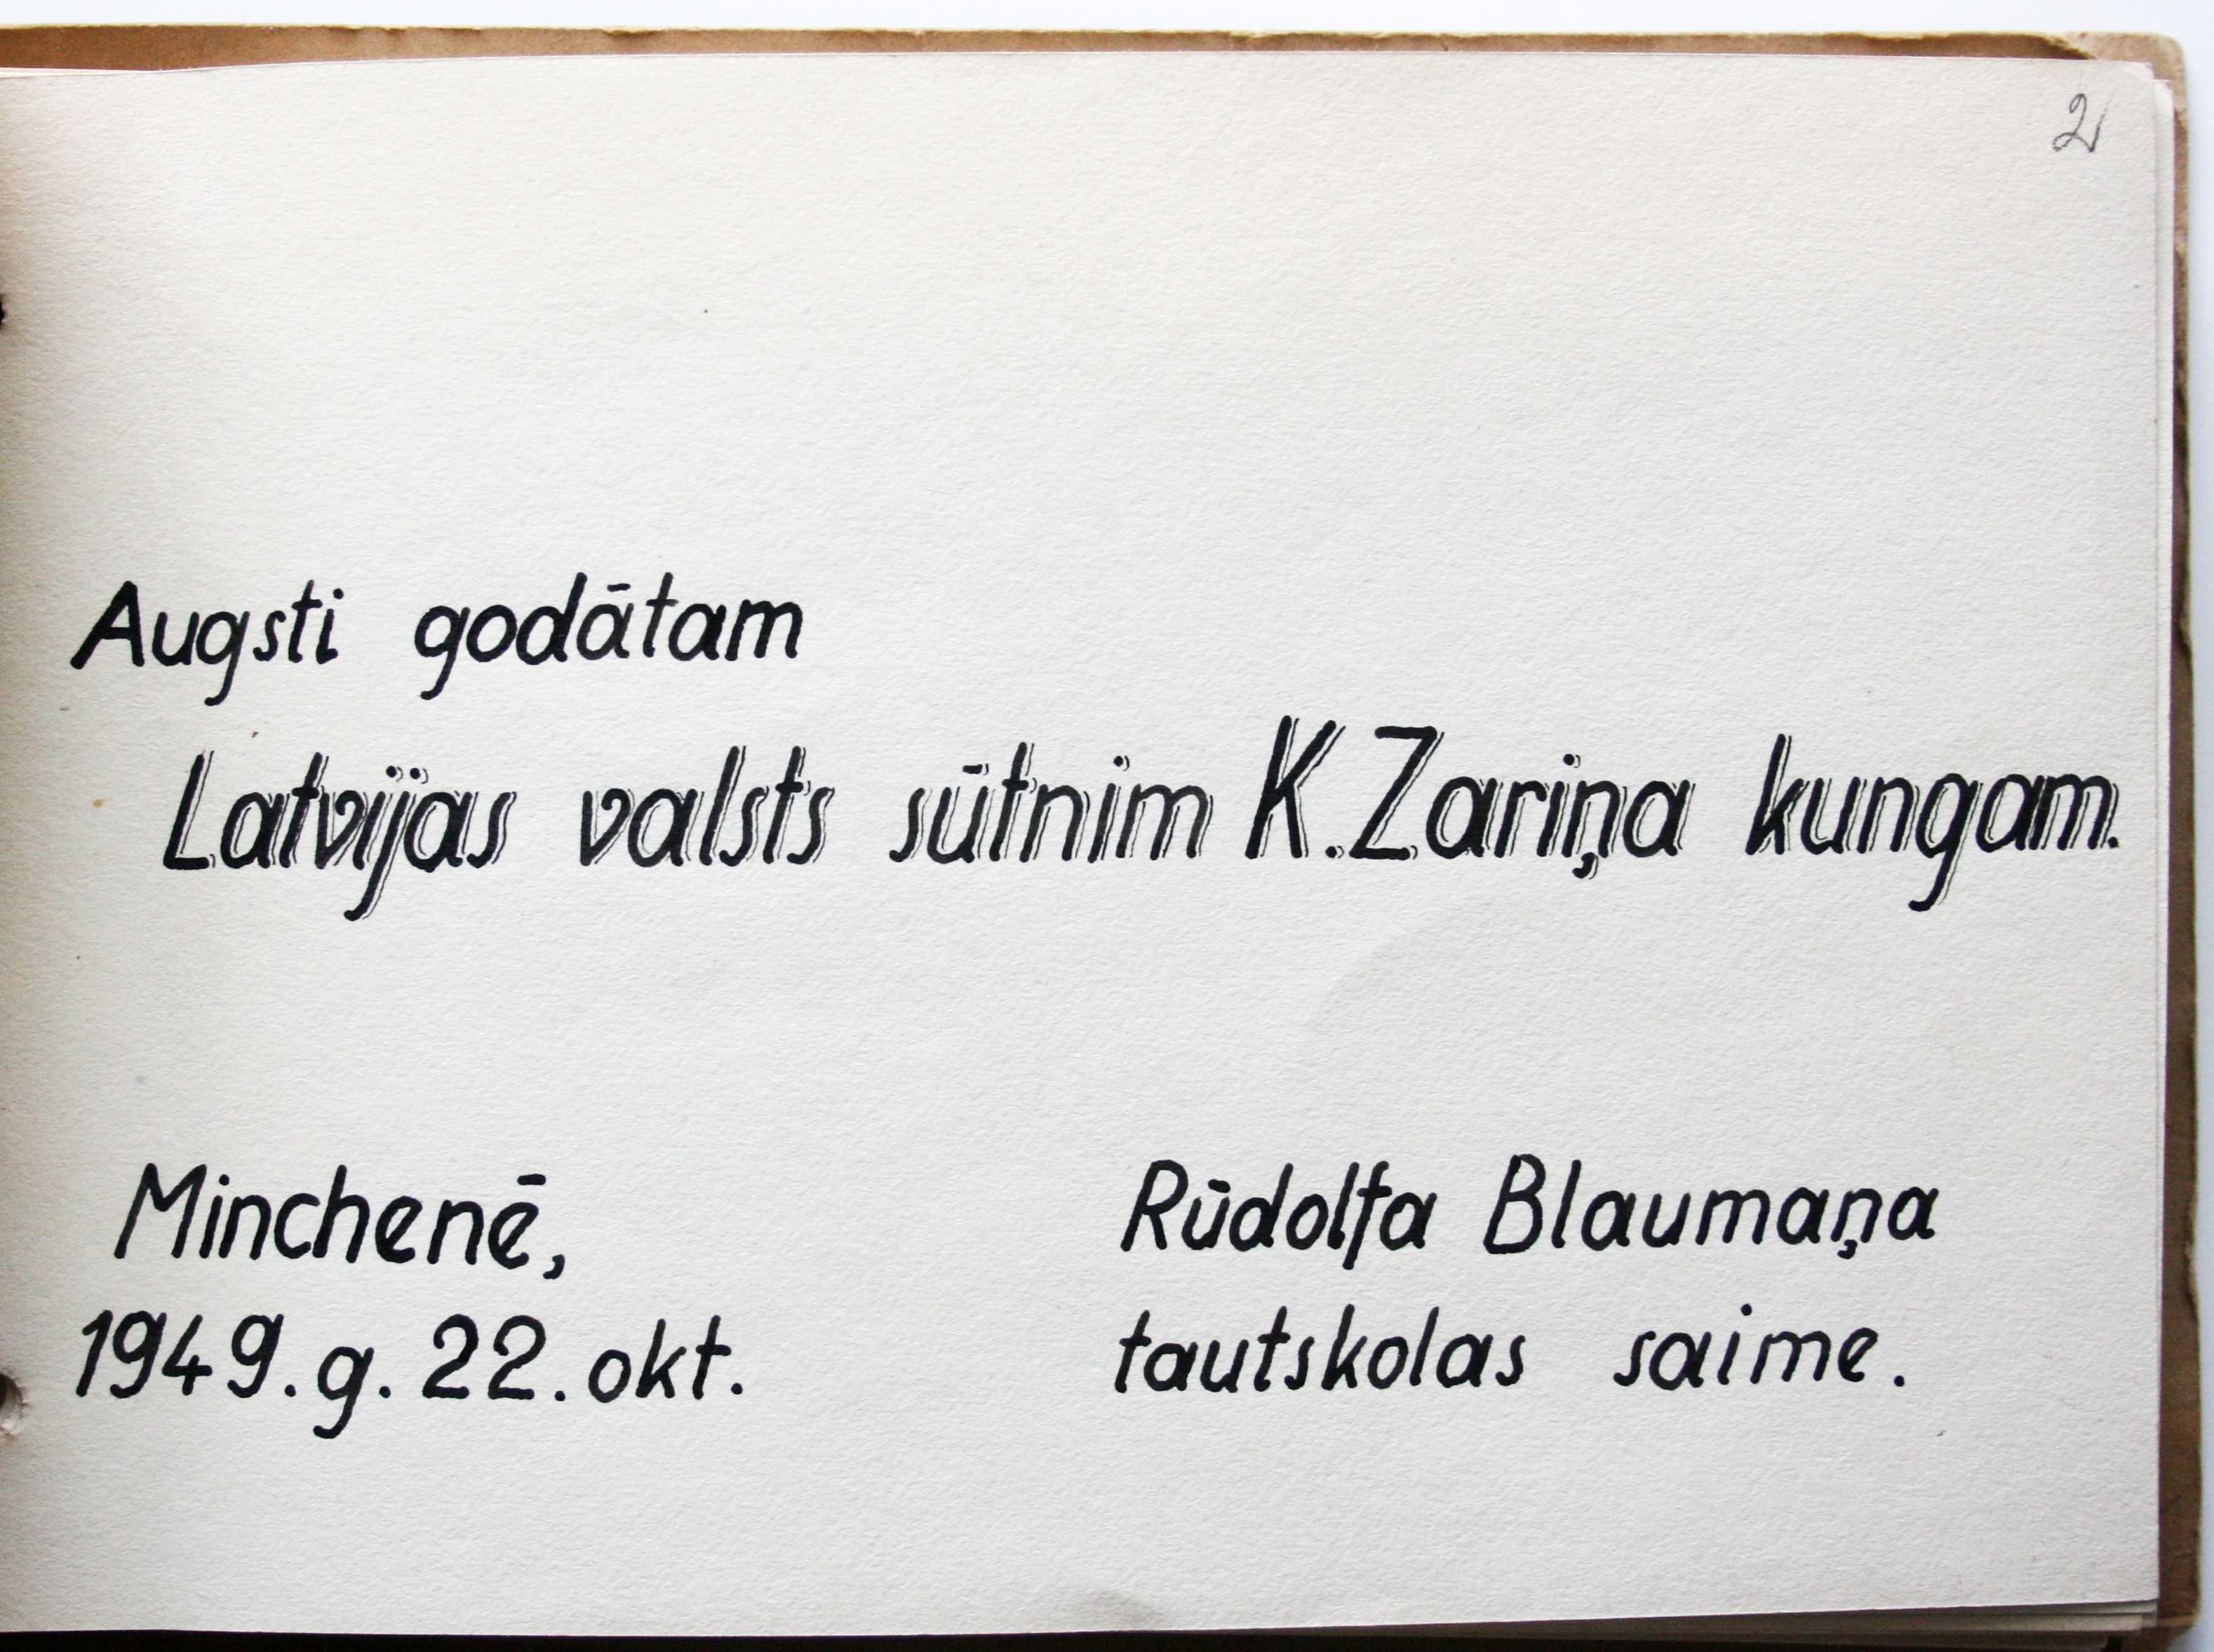 2
Augsti godātam
Latvijas valsts sūtnim K. Zariņa kungam.
Minchenē,
1949. g. 22. okt.
Rūdolfa Blaumaņa
tautskolas saime.